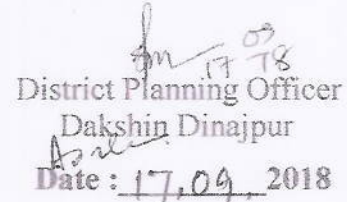 17 09 18
District Planning Officer
Dakshin Dinajpur
Date : 17.09. 2018